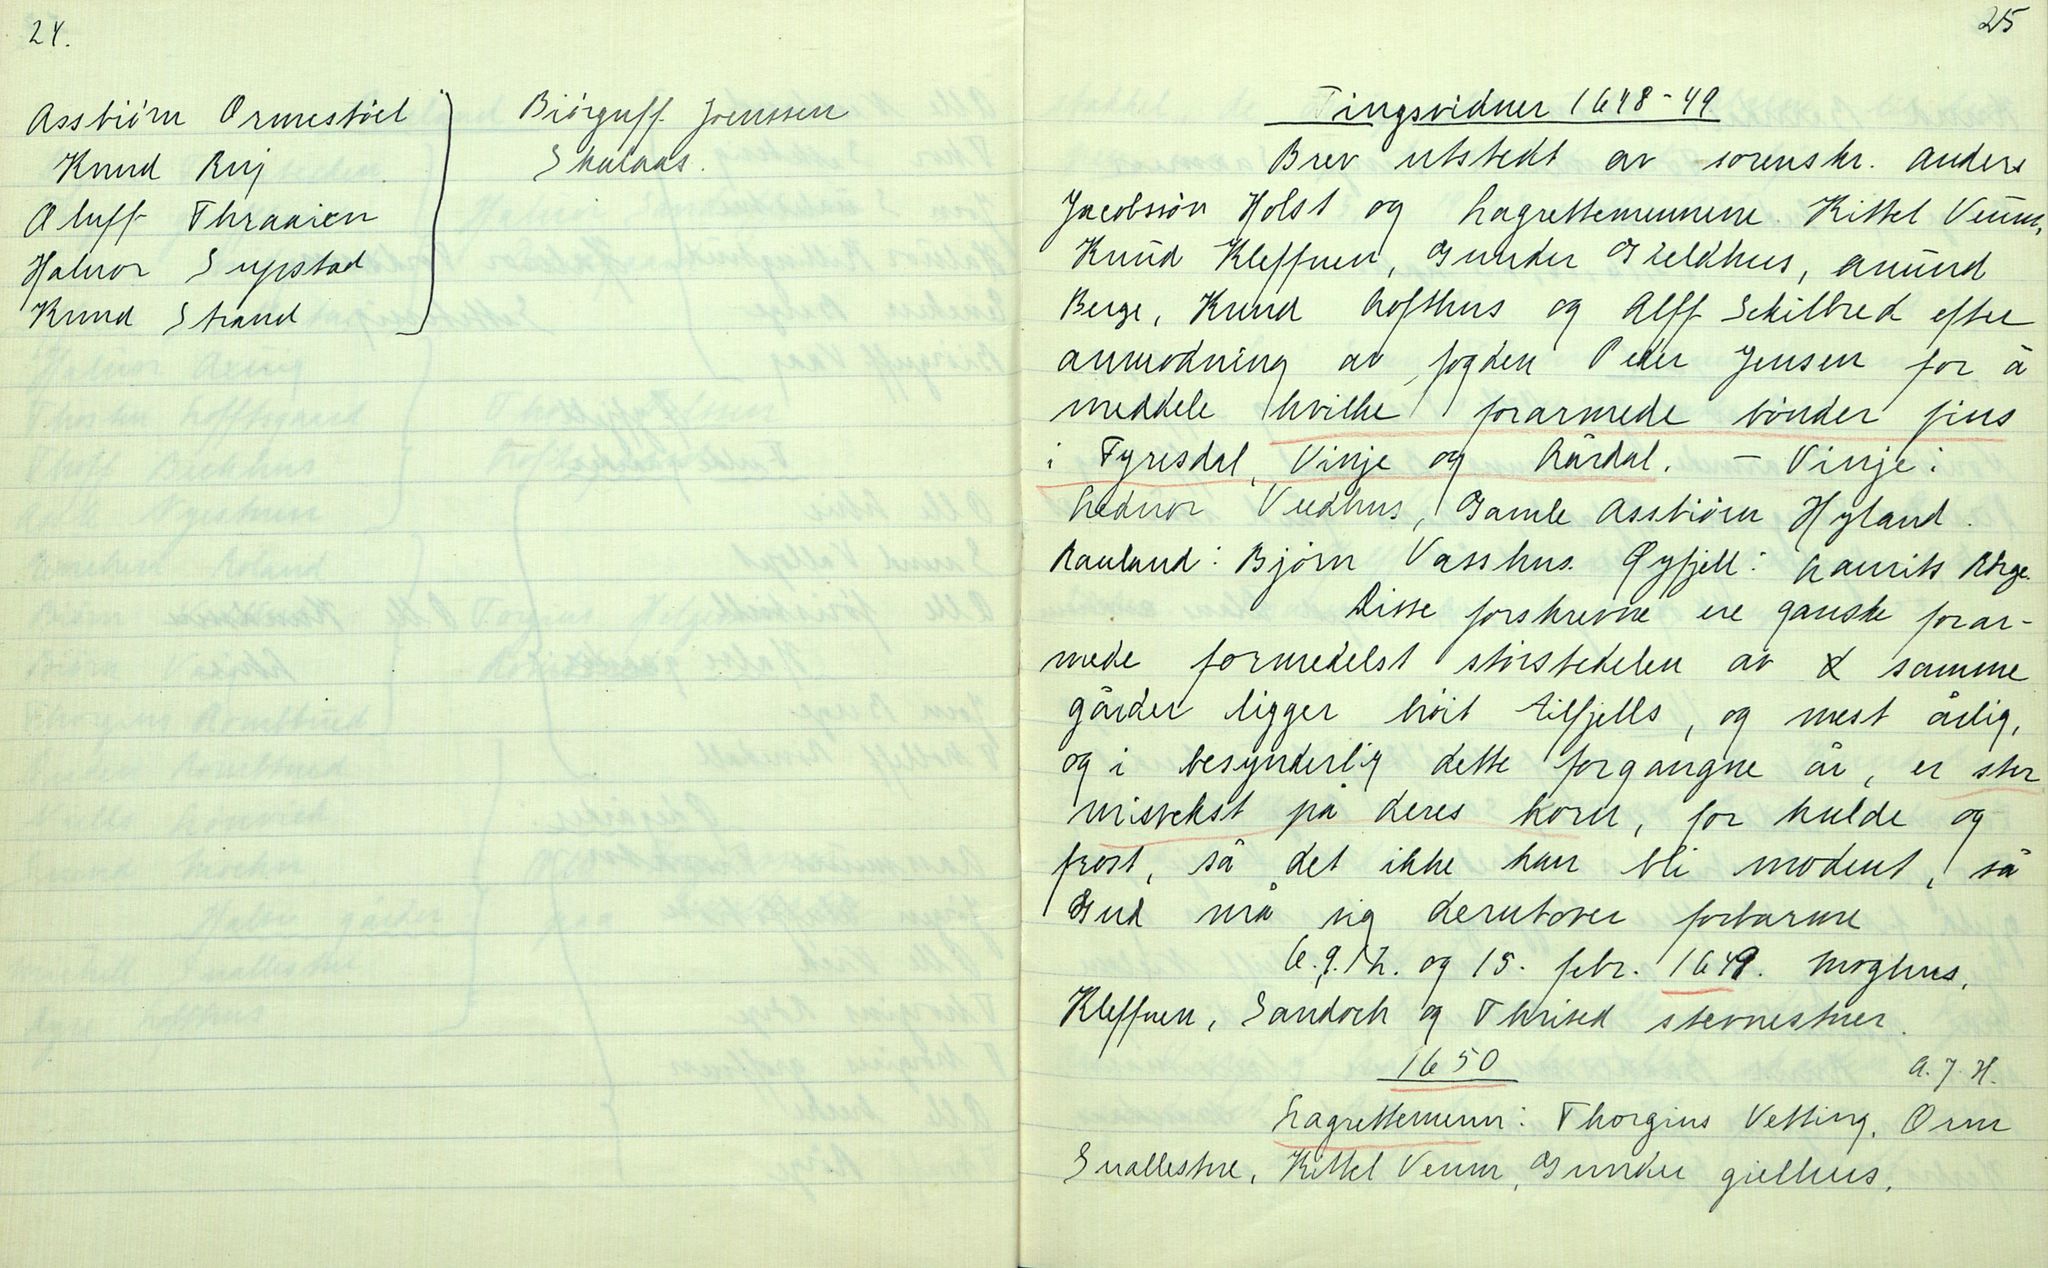 24.
Assbiörn Ormestöel
Knud Ruj
Oluff Thraaien
Halvor Sypstad
Knud Strand
Biörguff Joenssen
Skalaas.
25
Tingsvidner 1648-49
Brev utstedt av sorenskr. Anders
Jacobssön Holst og Lagrettemennene Kittel Veum,
Knud Kleffnen, Gunder Gieldhus, Amund
Berge, Knud Lofthus og Alff Schilbred efter
anmodning av fogden Peder Jensen for å
meddele hvilke forarmede bönder fins
i Tyresdal, Vinje og Lårdal. - Vinje:
Lednor Vedhus, Gamle Assbiörn Hyland.
Rauland: Björn Vasshus. Öyfjell: Laurits
Disse forskrevne ere ganske forar-
mede formedelst störstedelen av samme
gårder ligger höit tilfjells, og mest årlig,
og i besynderlig dette forgangne år, er stor
misvekst på deres korn, for kulde og
frost, så det ikke kan bli modent, så
Gud må sig derutover forbarme
6. 9. 12. og 15. febr. 1649. Moghus,
Kleffnen, Sandock og Thrised stevnestuer.
1650
A. J. H.
Lagrettemenn: Thorgius Vetting, Orm
Snallestue, Kittel Veum, Gunder gielhus,